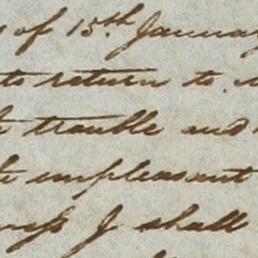 of 15th January
to return to
trouble and
unpleasant
I shall